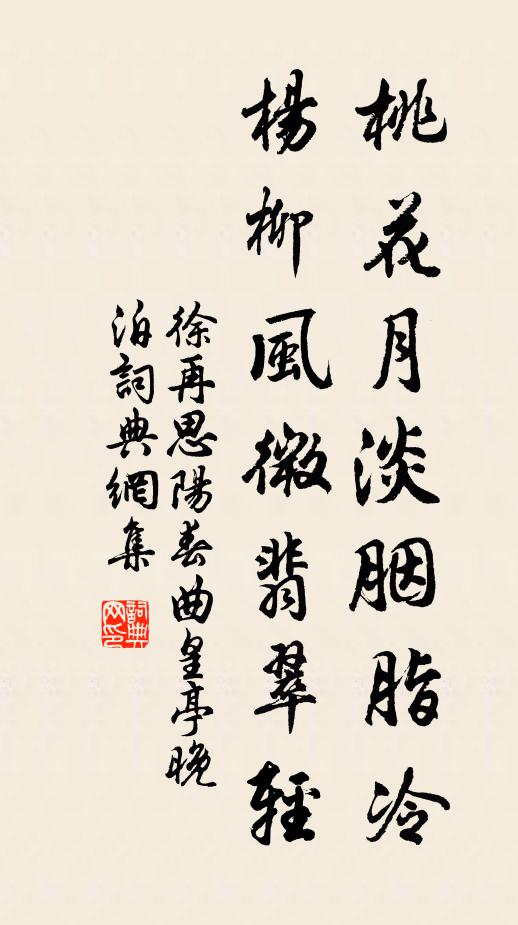 桃花月淡胭脂冷
楊柳風微翡翠輕
徐再思陽春曲皇亭晚
泊詞典網集
詞典
网印